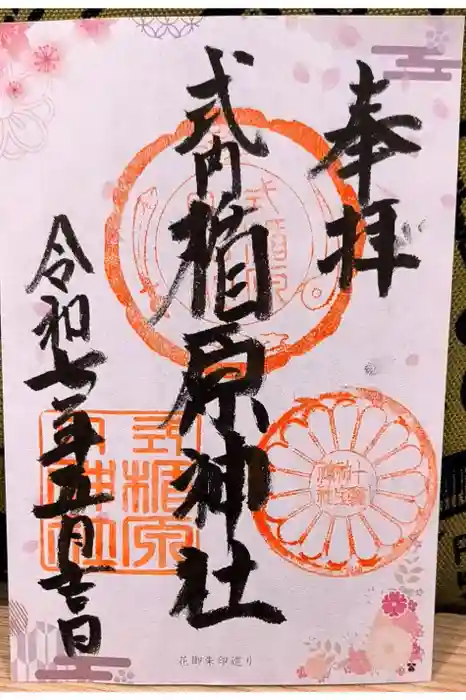 奉拝
式内楯原神社
令和七年五月吉日
式内
楯原
神社
花御朱印巡り